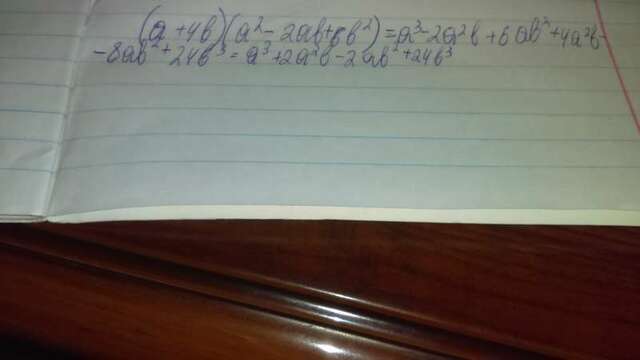 (a+4b)(a²-2ab+6b²)=a³-2a²b+6ab²+4a²b-
-8ab²+24b³=a³+2a²b-2ab²+24b³